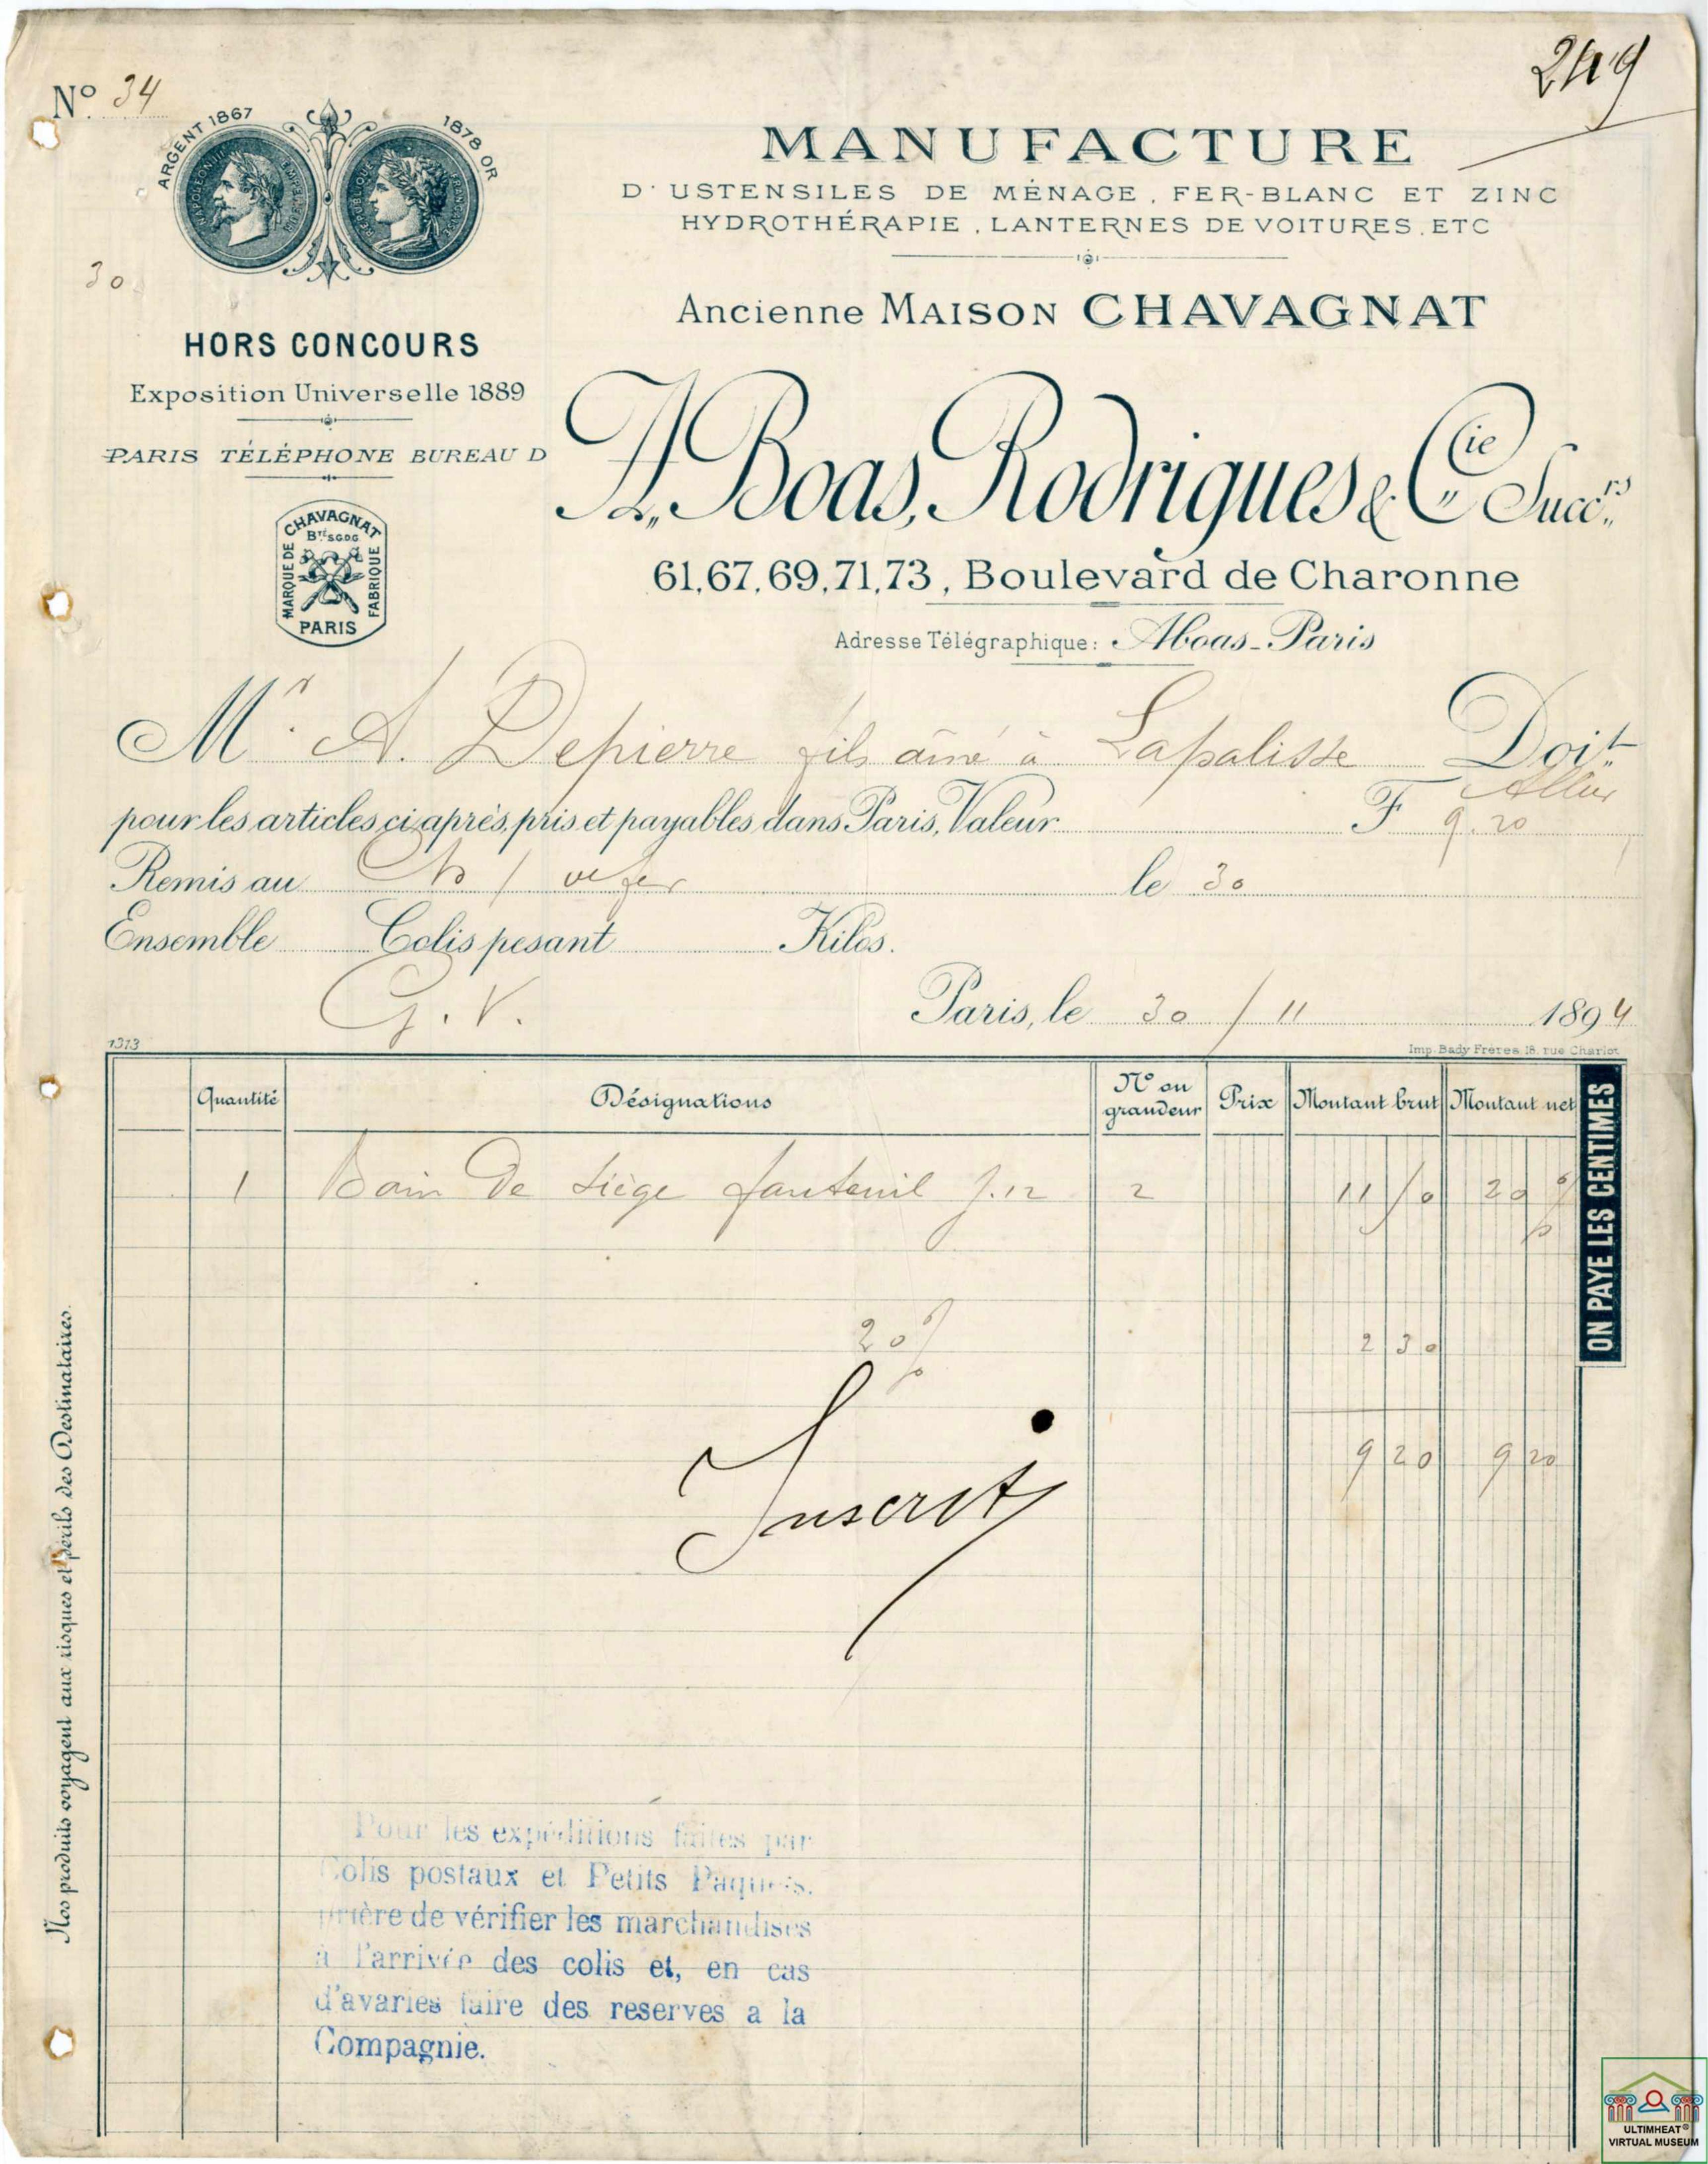 249
Nº 34
ARGENT 1867
1878 OR
NAPOLEON III EMPEREUR
REPUBLIQUE FRANÇAISE
30
HORS CONCOURS
Exposition Universelle 1889
PARIS TÉLÉPHONE BUREAU D
MARQUE DE
CHAVAGNAT
Bté SGDG
FABRIQUE
PARIS
MANUFACTURE
D'USTENSILES DE MÉNAGE, FER-BLANC ET ZINC
HYDROTHÉRAPIE, LANTERNES DE VOITURES, ETC
Ancienne MAISON CHAVAGNAT
A. Boas, Rodrigues & Cie Succrs
61, 67, 69, 71, 73, Boulevard de Charonne
Adresse Télégraphique: Aboas-Paris
Mr. A. Depierre fils aîné à Lapalisse Doit
pour les articles ci-après, pris et payables dans Paris, Valeur F 9.20
Remis au le 30
Ensemble Colis pesant Kilos.
G. V.
Paris, le 30 / 11 1894
1313
Imp. Bady Frères, 18, rue Charlot
Quantité Désignations Nº ou grandeur Prix Montant brut Montant net
ON PAYE LES CENTIMES
1 Bain de siège fauteuil f.12 2 11 50 20 %
20 % 2 30
9 20 9 20
Inscrit
Nos produits voyagent aux risques et périls des Destinataires.
Pour les expéditions faites par
Colis postaux et Petits Paquets,
prière de vérifier les marchandises
à l'arrivée des colis et, en cas
d'avaries faire des reserves a la
Compagnie.
ULTIMHEAT®
VIRTUAL MUSEUM